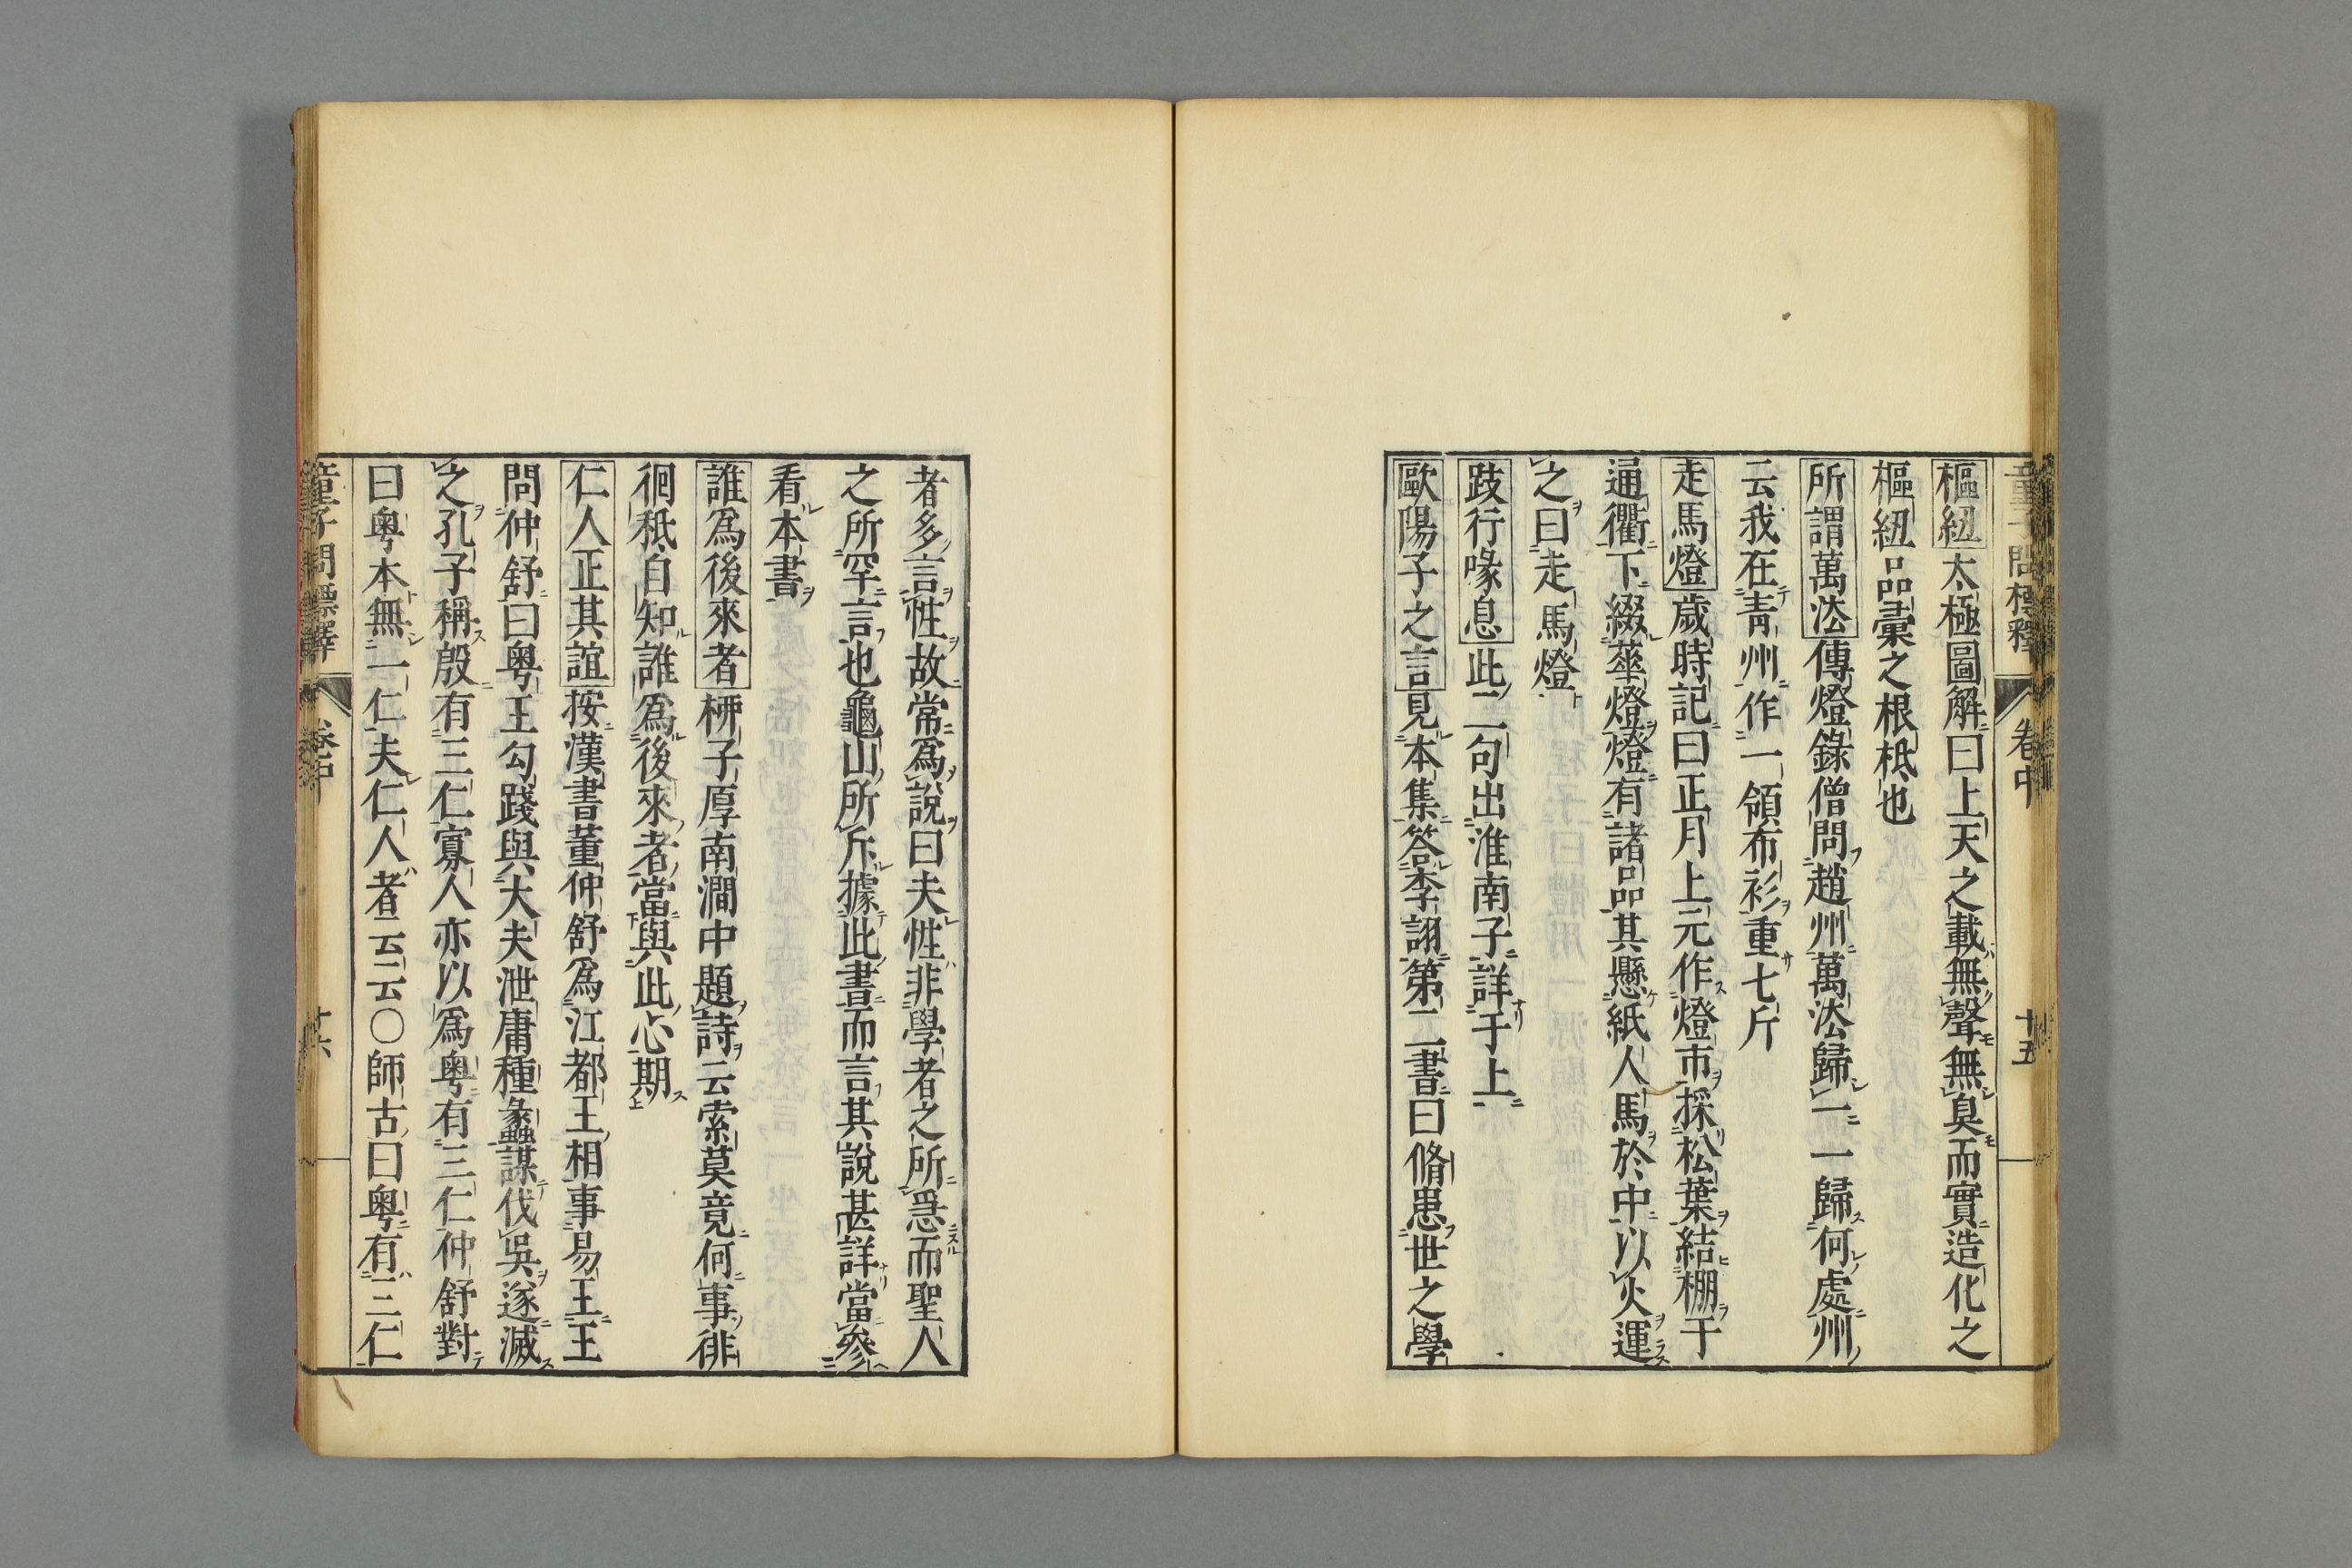 童子問標釋 卷中 十五
樞紐太極圖解曰上天之載無聲無臭而實造化之
樞紐品彙之根柢也
所謂萬法傳燈錄僧問趙州萬法歸一一歸何處州
云我在青州作一領布衫重七斤
走馬燈歲時記曰正月上元作燈市採松葉結棚于
通衢下綴華燈燈有諸品其懸紙人馬於中以火運
之曰走馬燈
跂行喙息此二句出淮南子詳于上
歐陽子之言見本集答李詡第二書曰脩患世之學
者多言性故常爲說曰夫性非學者之所急而聖人
之所罕言也龜山所斥據此書而言其說甚詳當參
看本書
誰爲後來者柳子厚南澗中題詩云索莫竟何事徘
徊秪自知誰爲後來者當與此心期
仁人正其誼按漢書董仲舒爲江都王相事易王王
問仲舒曰粤王勾踐與大夫泄庸種蠡謀伐吳遂滅
之孔子稱殷有三仁寡人亦以爲粤有三仁仲舒對
曰粤本無一仁夫仁人者云云〇師古曰粤有三仁
童子問標釋 卷中 十六